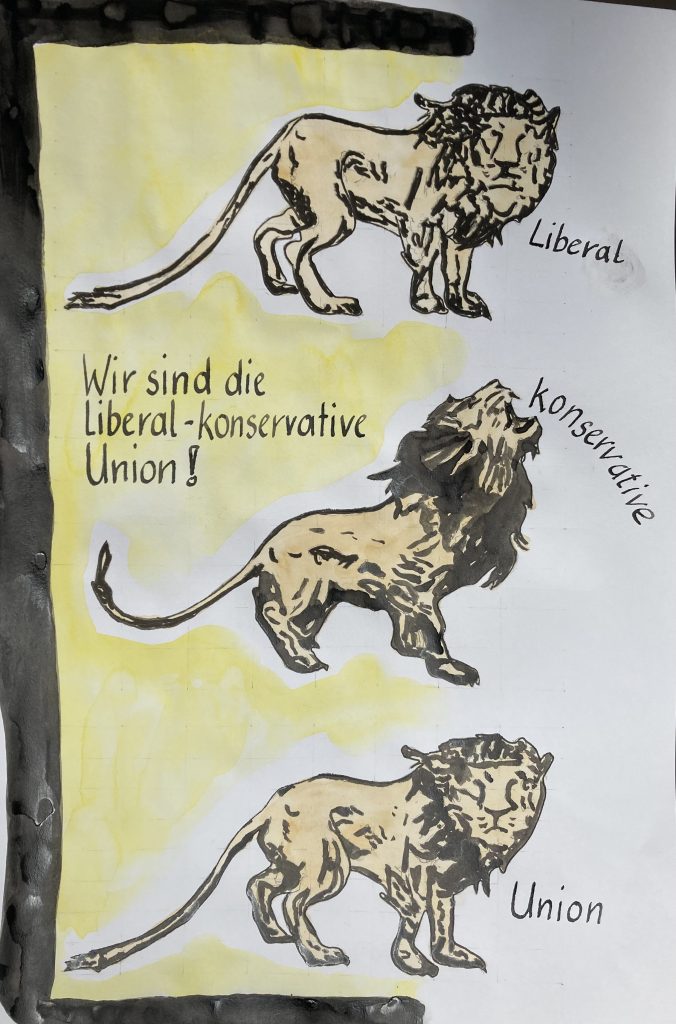 Liberal
Wir sind die
Liberal-konservative
Union!
konservative
Union